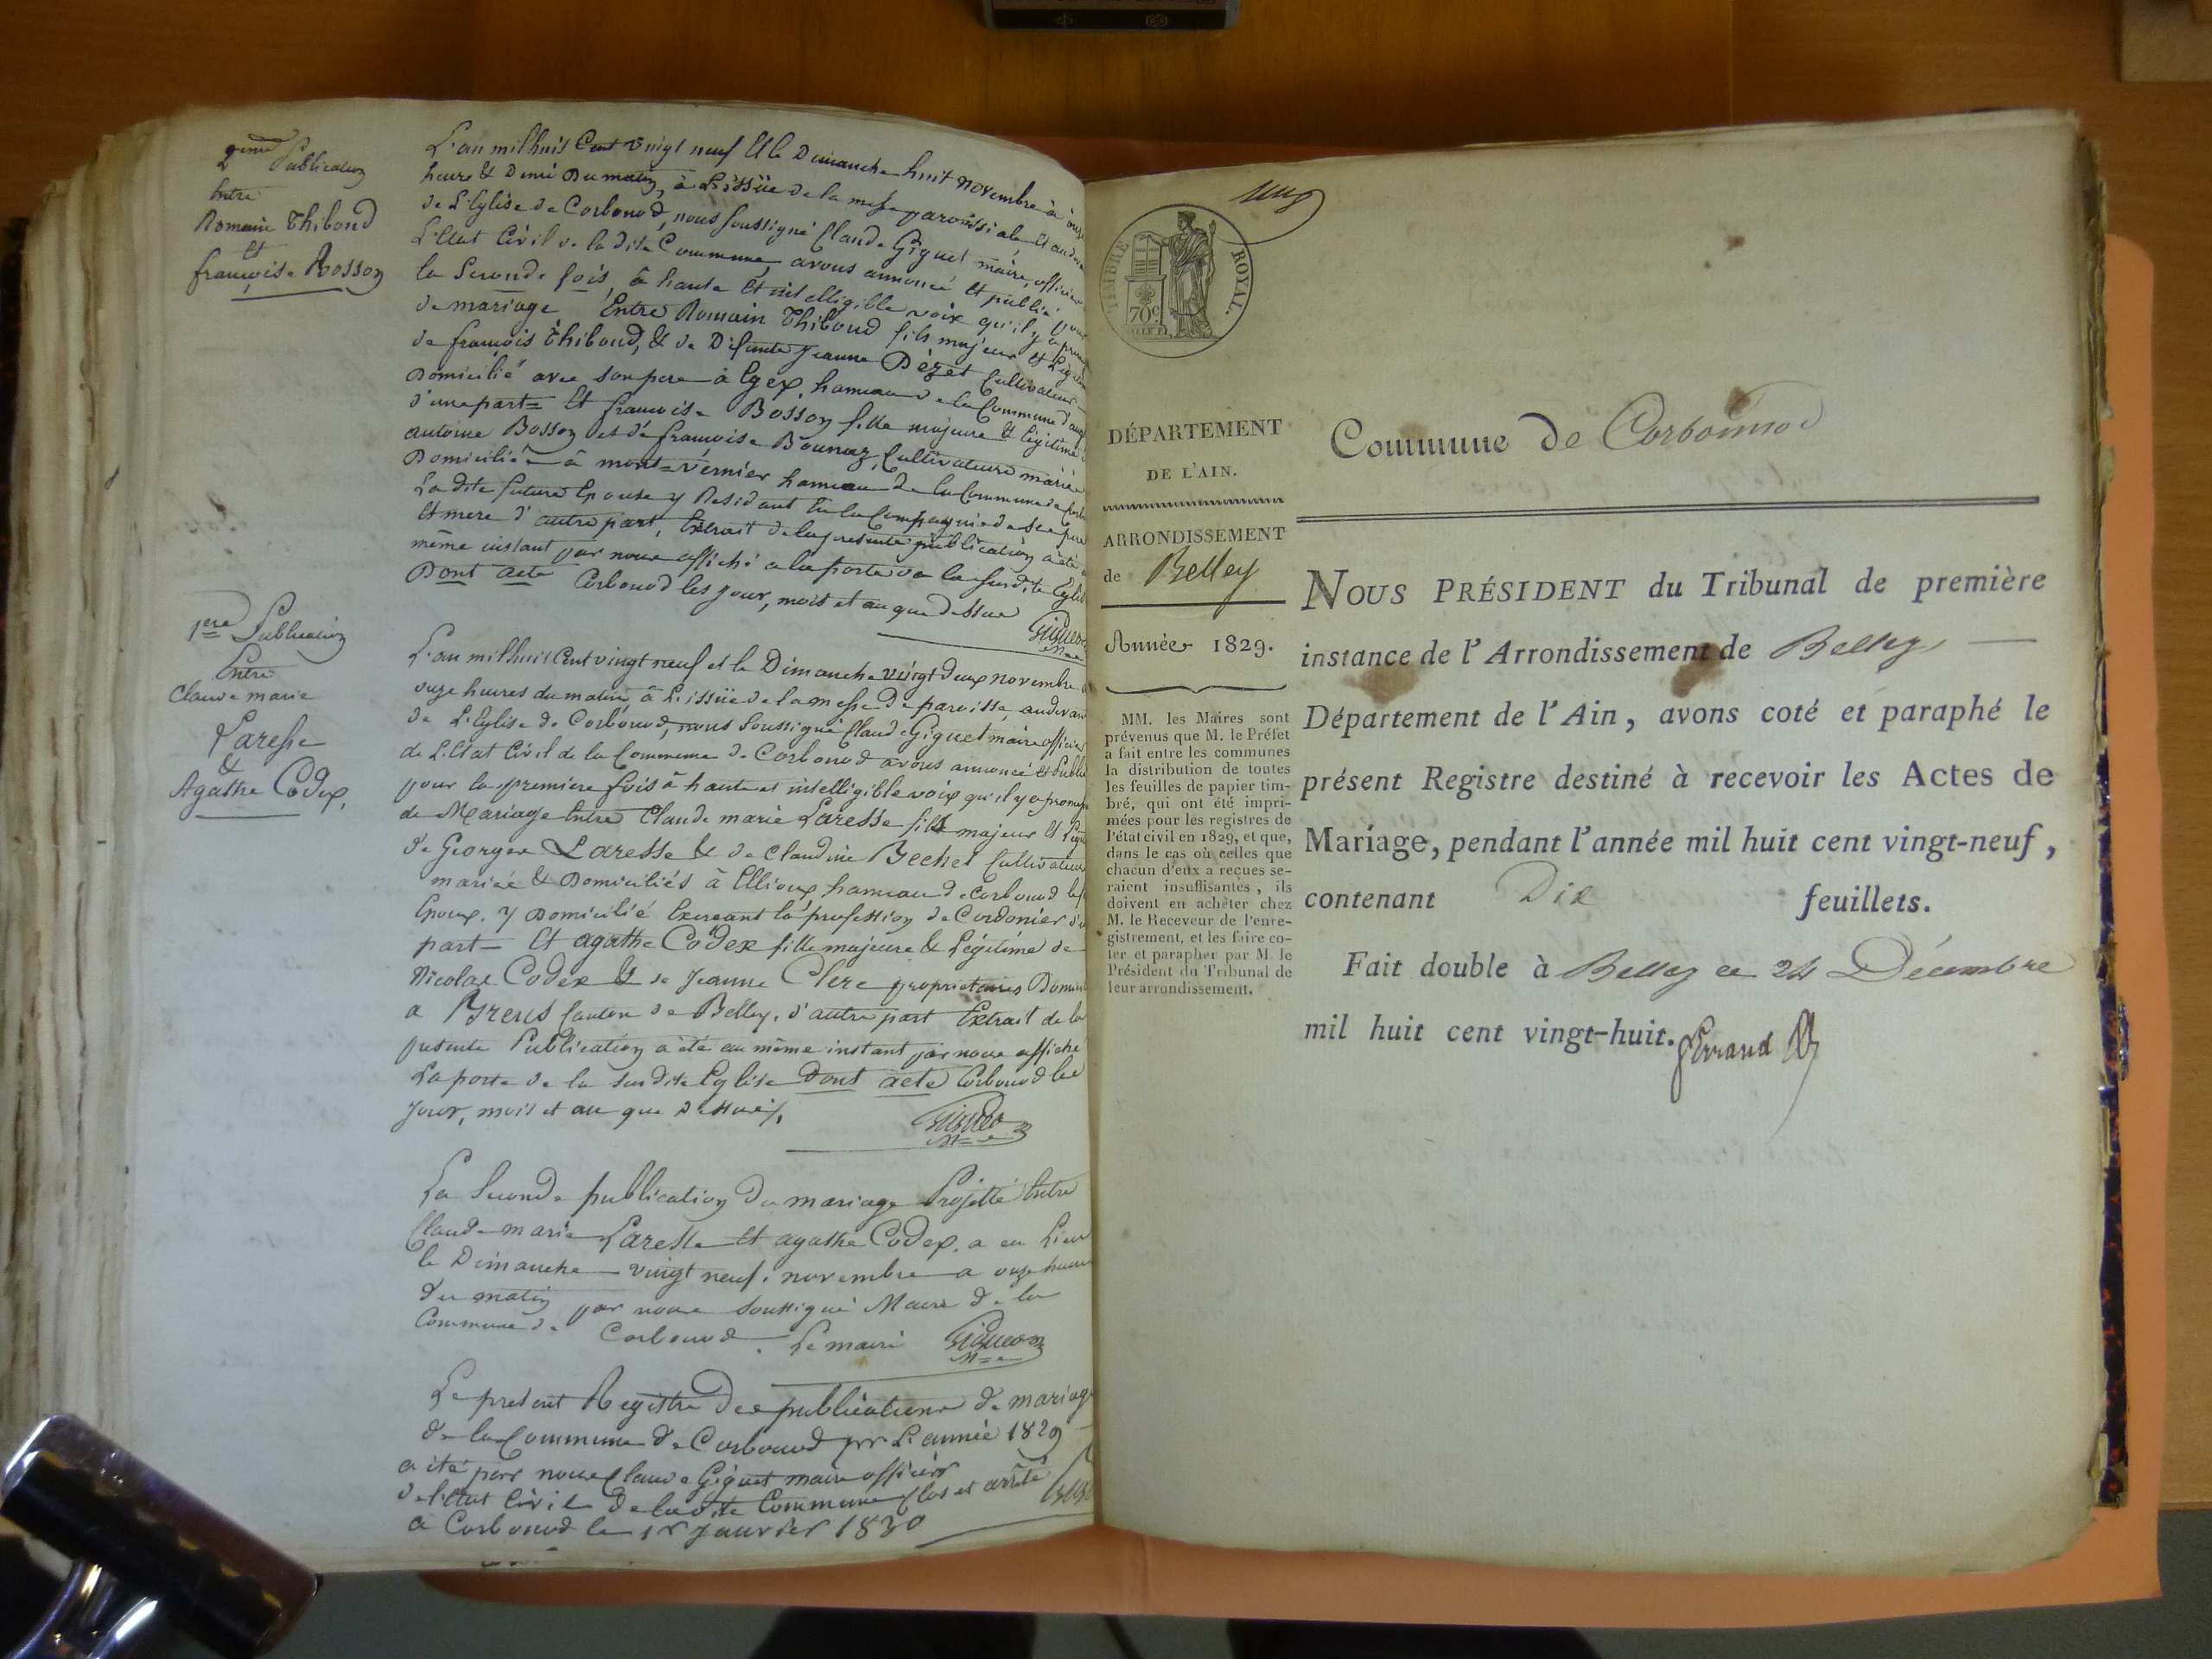 2eme Publication
Entre
Romain Thiboud
et
françoise Bosson
L'an mil huit Cent vingt neuf Et le Dimanche huit novembre à onze
heure & Demi Du matin, à L'issüe de la messe paroissiale, Et au devan
de L'Eglise de Corbonod, nous soussigné Claude Giguet maire, officier
L'Etat Civil de la dite Commune, avons annoncé et publié pour
la Seconde fois, à haute Et intelligible voix qu'il y a prom
de mariage, Entre Romain Thiboud fils majeur et Légitim
de françois Thiboud, & de Defunte Jeanne Dézet Cultivateur
Domicilié avec son pere à Eyex, hameau de la Commune d'
d'une part= Et françoise Bosson fille majeure & légitime
antoine Bosson et de françoise Bounaz, Cultivateurs mariés
Domiciliés à mont=vernier hameau de la Commune de Corb
La dite future Epouse y Residant En la Compagnie de ses pere
Et mere d'autre part, Extrait de la presente publication a été
même instant par nous affiché a la porte de la susdite Eglis
Dont acte Corbonod les jour, mois et an que dessus
Giguet
1ere Publication
Entre
Claude marie
Laresse
&
Agathe Codex,
L'an mil huit Cent vingt neuf et le Dimanche vingt deux novembre
onze heures du matin, à L'issüe de la messe de paroisse, au devan
de L'Eglise de Corbonod, nous Soussigné Claude Giguet maire officier
de L'Etat Civil de la Commune de Corbonod avons annoncé et Publi
pour la premiere fois à haute et intelligible voix qu'il y a promes
de Mariage Entre Claude marie Laresse fils majeur et Légi
de Georges Laresse & de Claudine Bechet Cultivateurs
mariés & Domiciliés à Ellioux hameau de Corbonod
Epoux, y Domicilié Exerceant la profession de Cordonier d'u
part= Et agathe Codex fille majeure & Légitime de
Nicolas Codex & de Jeanne Clerc proprietaires Domici
a Brens Canton de Belley, d'autre part Extrait de la
presente Publication a été au même instant par nous affiché
La porte de la susdite Eglise Dont acte Corbonod les
jour, mois et an que dessus,
Giguet
La Seconde publication du mariage Projetté Entre
Claude marie Laresse et agathe Codex, a eu Lieu
le Dimanche vingt neuf, novembre a onze heures
du matin par nous soussigné Maire de la
Commune de Corbonod. Le maire Giguet
Le present Registre des publications de mariage
de la Commune de Corbonod pr L'année 1829
a été par nous Claude Giguet maire officier
de l'Etat Civil de la dite Commune Clos et arrêté
a Corbonod le 1r Janvier 1830
TIMBRE ROYAL.
70c
DÉPARTEMENT
DE L'AIN.
ARRONDISSEMENT
de Belley
Année 1829.
MM. les Maires sont
prévenus que M. le Préfet
a fait entre les communes
la distribution de toutes
les feuilles de papier tim-
bré, qui ont été impri-
mées pour les registres de
l'état civil en 1829, et que,
dans le cas où celles que
chacun d'eux a reçues se-
raient insuffisantes, ils
doivent en acheter chez
M. le Receveur de l'enre-
gistrement, et les faire co-
ter et parapher par M. le
Président du Tribunal de
leur arrondissement.
Commune de Corbonnod
NOUS PRÉSIDENT du Tribunal de première
instance de l'Arrondissement de Belley
Département de l'Ain, avons coté et paraphé le
présent Registre destiné à recevoir les Actes de
Mariage, pendant l'année mil huit cent vingt-neuf,
contenant Dix feuillets.
Fait double à Belley ce 24 Décembre
mil huit cent vingt-huit.